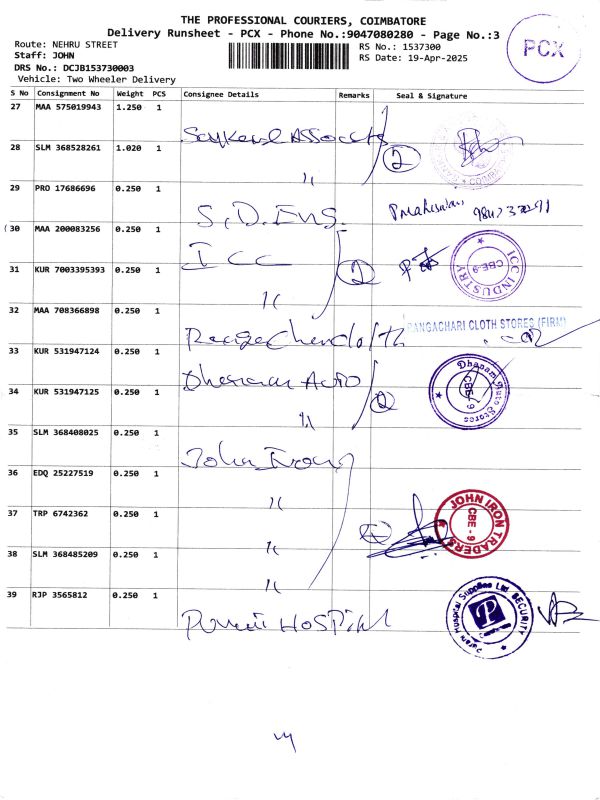 THE PROFESSIONAL COURIERS, COIMBATORE
Delivery Runsheet - PCX - Phone No.:9047080280 - Page No.:3
Route: NEHRU STREET
RS No.: 1537300
Staff: JOHN
RS Date: 19-Apr-2025
DRS No.: DCJB153730003
Vehicle: Two Wheeler Delivery
PCX
S No Consignment No Weight PCS Consignee Details Remarks Seal & Signature
27 MAA 575019943 1.250 1
28 SLM 368528261 1.020 1 〃 2
29 PRO 17686696 0.250 1 S.D. Eng.
30 MAA 200083256 0.250 1 ICC
31 KUR 7003395393 0.250 1 〃 2
ICC INDUSTRY CBE-9
32 MAA 708366898 0.250 1
RANGACHARI CLOTH STORES (FIRM)
33 KUR 531947124 0.250 1 Auto
34 KUR 531947125 0.250 1 〃 2
Dhanam Auto Stores CBE-9
35 SLM 368408025 0.250 1 John Iron
36 EDQ 25227519 0.250 1 〃
37 TRP 6742362 0.250 1 〃
38 SLM 368485209 0.250 1 〃
JOHN IRON TRADERS CBE-9
39 RJP 3565812 0.250 1 Hospital
Hospital Supplies Ltd SECURITY
P